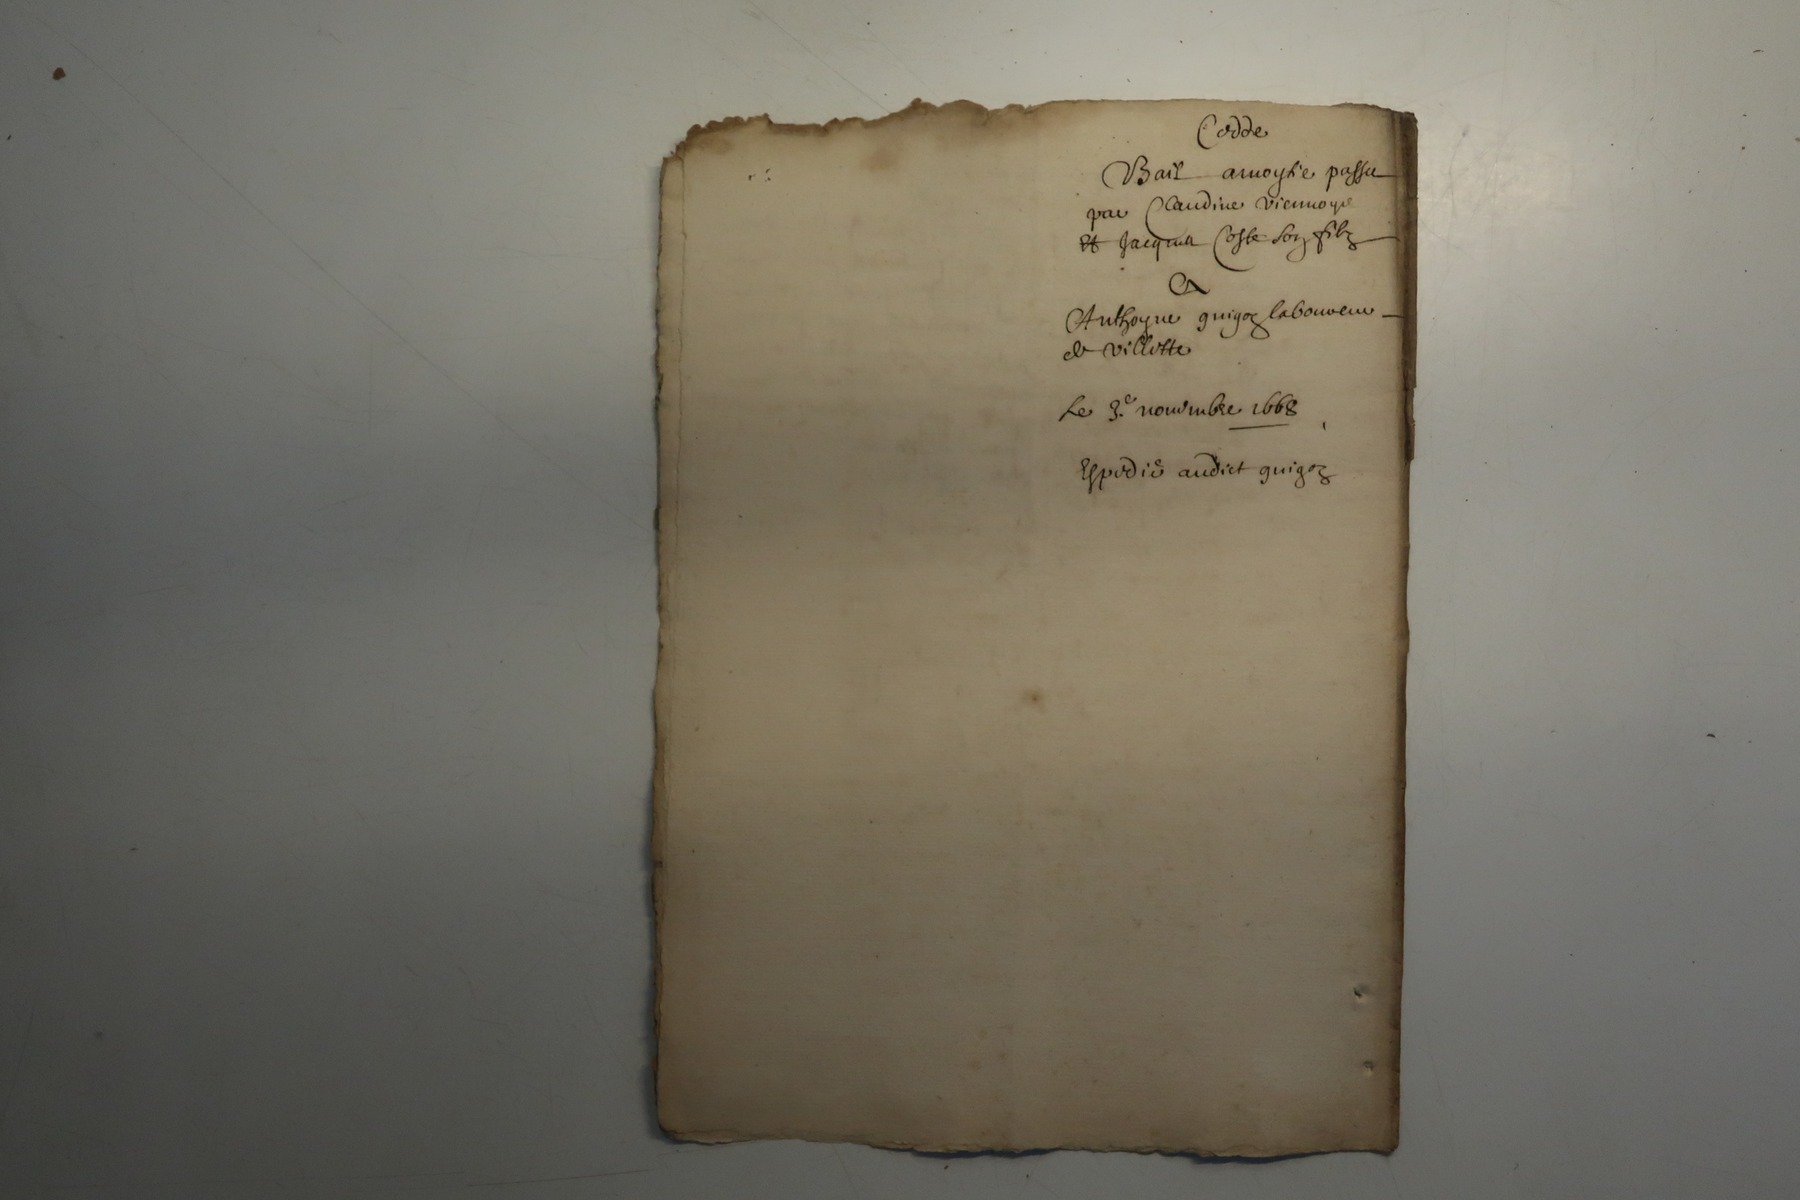 Codde
Bail amoytie passe
par Claudine viennoys
Et Jacques Coste son filz
A
Anthoyne guigoz laboureur
de villette
Le 3.e novembre 1668
Expedié audict guigoz